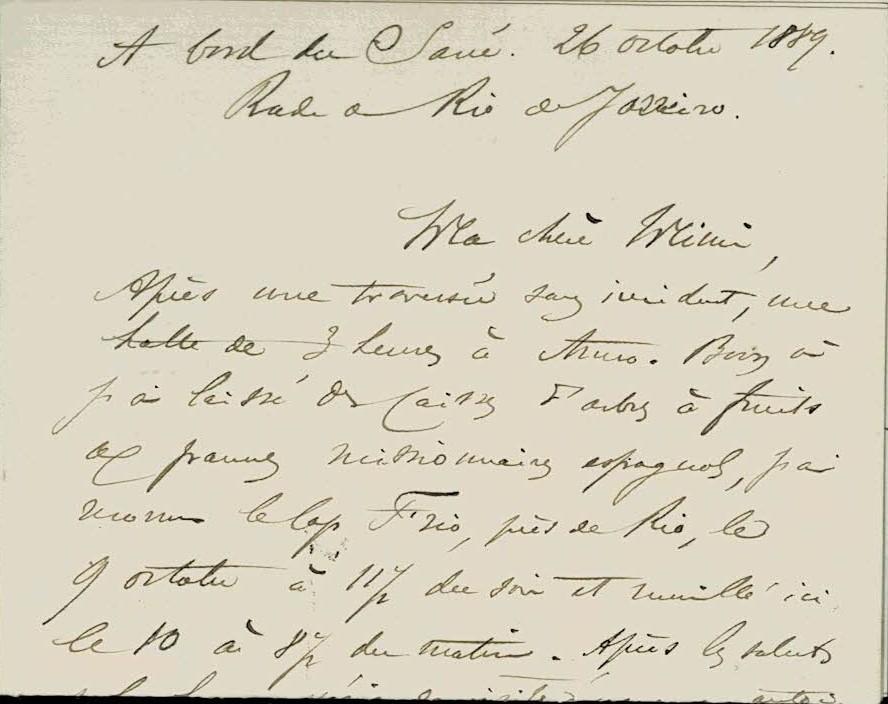 A bord du Sané. 26 octobre 1889.
Rade de Rio de Janeiro.
Ma chère Mimi,
Après une traversée sans incident, une
halte de 3 heures à Anno-Bon où
j'ai laissé des caisses d'arbres à fruits
aux pauvres missionnaires espagnols, j'ai
reconnu le Cap Frio, près de Rio, le
9 octobre à 11h du soir et mouillé ici
le 10 à 8h du matin. Après les saluts